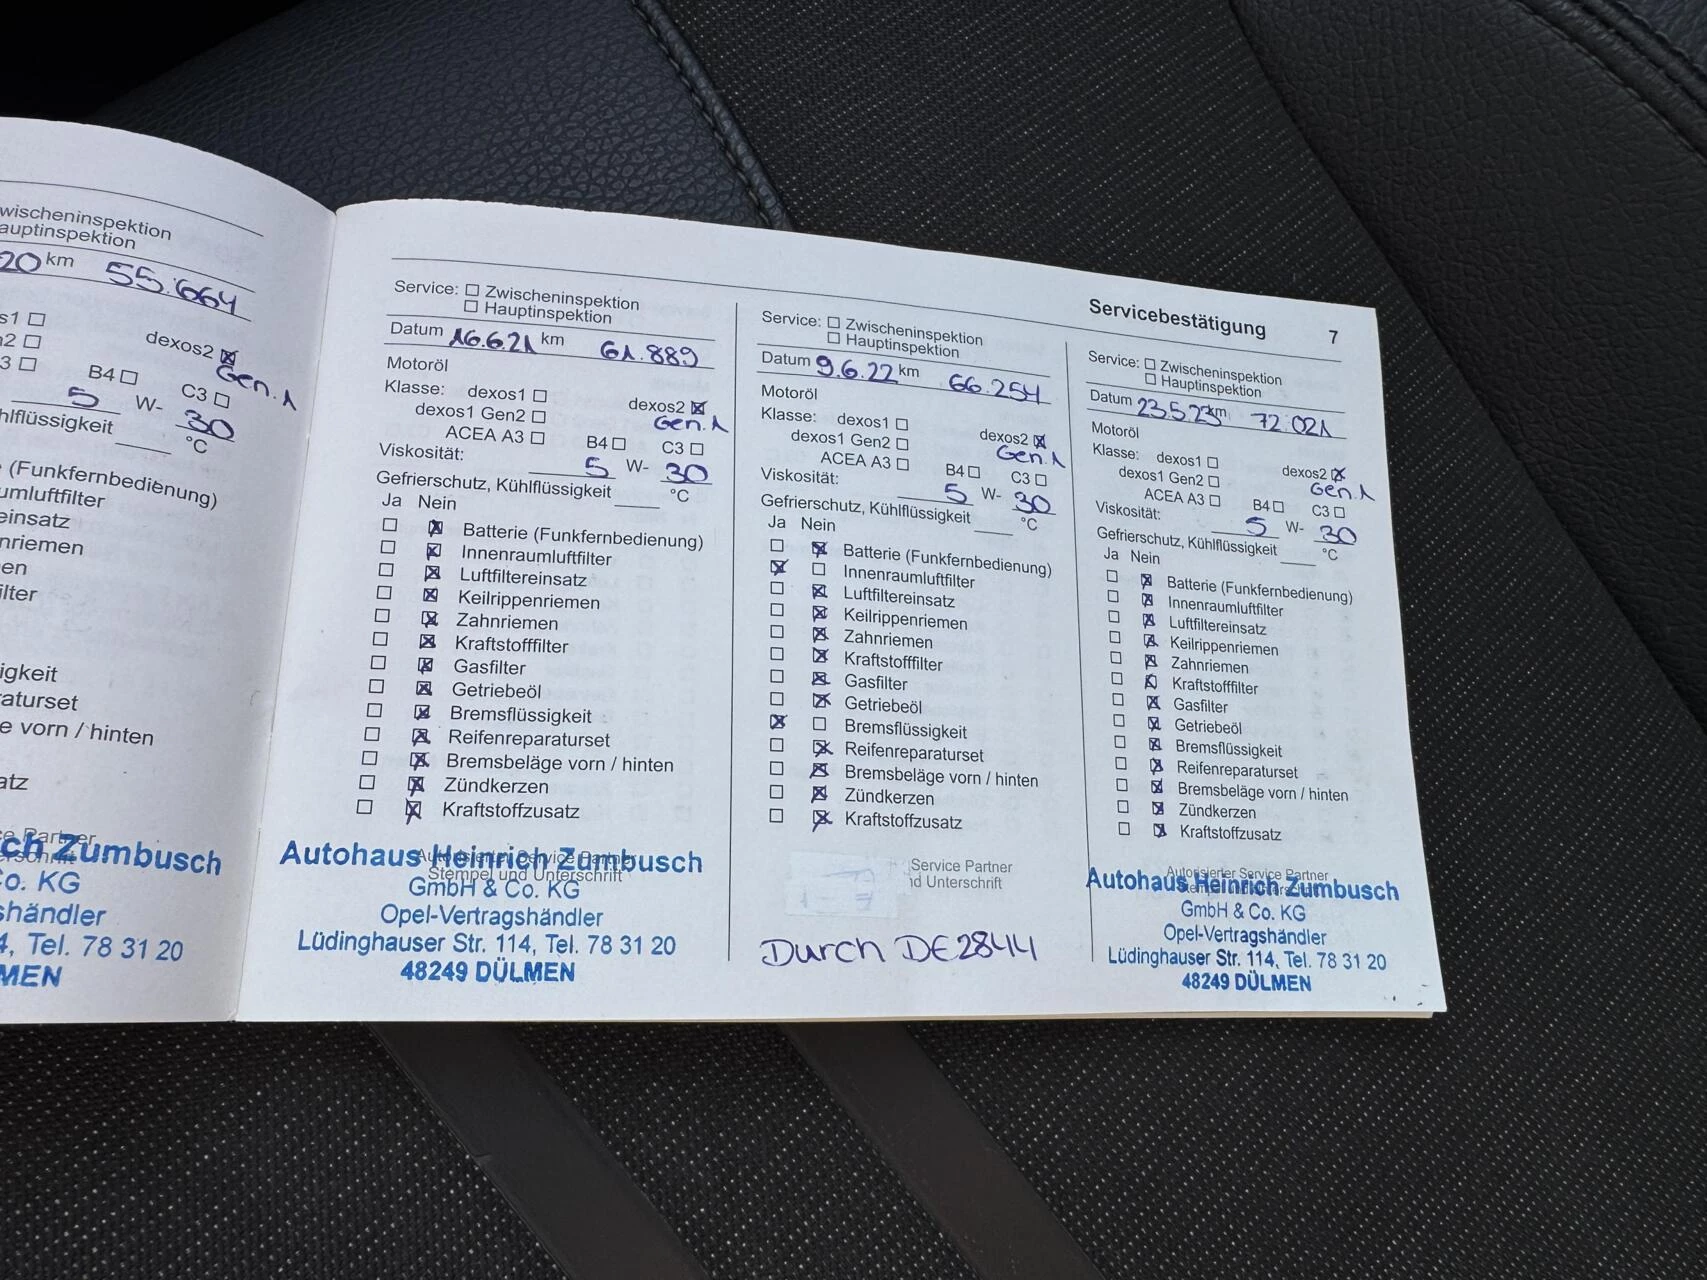 wischeninspektion
auptinspektion
20 km 55.664
s1 ☐
n2 ☐ dexos2 ☒
Gen.1
3 ☐ B4 ☐ C3 ☐
5 W- 30
hlflüssigkeit °C
(Funkfernbedienung)
umluftfilter
einsatz
nriemen
en
ilter
igkeit
raturset
e vorn / hinten
atz
ce Partner
erschrift
ch Zumbusch
Co. KG
shändler
4, Tel. 78 31 20
MEN
Servicebestätigung 7
Service: ☐ Zwischeninspektion
☐ Hauptinspektion
Datum 16.6.21 km 61.889
Motoröl
Klasse: dexos1 ☐ dexos2 ☒
dexos1 Gen2 ☐ Gen.1
ACEA A3 ☐ B4 ☐ C3 ☐
Viskosität: 5 W- 30
Gefrierschutz, Kühlflüssigkeit °C
Ja Nein
☐ ☒ Batterie (Funkfernbedienung)
☐ ☒ Innenraumluftfilter
☐ ☒ Luftfiltereinsatz
☐ ☒ Keilrippenriemen
☐ ☒ Zahnriemen
☐ ☒ Kraftstofffilter
☐ ☒ Gasfilter
☐ ☒ Getriebeöl
☐ ☒ Bremsflüssigkeit
☐ ☒ Reifenreparaturset
☐ ☒ Bremsbeläge vorn / hinten
☐ ☒ Zündkerzen
☐ ☒ Kraftstoffzusatz
Autorisierter Service Partner
Stempel und Unterschrift
Autohaus Heinrich Zumbusch
GmbH & Co. KG
Opel-Vertragshändler
Lüdinghauser Str. 114, Tel. 78 31 20
48249 DÜLMEN
Service: ☐ Zwischeninspektion
☐ Hauptinspektion
Datum 9.6.22 km 66.254
Motoröl
Klasse: dexos1 ☐ dexos2 ☒
dexos1 Gen2 ☐ Gen.1
ACEA A3 ☐ B4 ☐ C3 ☐
Viskosität: 5 W- 30
Gefrierschutz, Kühlflüssigkeit °C
Ja Nein
☐ ☒ Batterie (Funkfernbedienung)
☒ ☐ Innenraumluftfilter
☐ ☒ Luftfiltereinsatz
☐ ☒ Keilrippenriemen
☐ ☒ Zahnriemen
☐ ☒ Kraftstofffilter
☐ ☒ Gasfilter
☐ ☒ Getriebeöl
☒ ☐ Bremsflüssigkeit
☐ ☒ Reifenreparaturset
☐ ☒ Bremsbeläge vorn / hinten
☐ ☒ Zündkerzen
☐ ☒ Kraftstoffzusatz
Service Partner
nd Unterschrift
Durch DE28414
Service: ☐ Zwischeninspektion
☐ Hauptinspektion
Datum 23.5.23 km 72.021
Motoröl
Klasse: dexos1 ☐ dexos2 ☒
dexos1 Gen2 ☐ Gen.1
ACEA A3 ☐ B4 ☐ C3 ☐
Viskosität: 5 W- 30
Gefrierschutz, Kühlflüssigkeit °C
Ja Nein
☐ ☒ Batterie (Funkfernbedienung)
☐ ☒ Innenraumluftfilter
☐ ☒ Luftfiltereinsatz
☐ ☒ Keilrippenriemen
☐ ☒ Zahnriemen
☐ ☒ Kraftstofffilter
☐ ☒ Gasfilter
☐ ☒ Getriebeöl
☐ ☒ Bremsflüssigkeit
☐ ☒ Reifenreparaturset
☐ ☒ Bremsbeläge vorn / hinten
☐ ☒ Zündkerzen
☐ ☒ Kraftstoffzusatz
Autorisierter Service Partner
Autohaus Heinrich Zumbusch
GmbH & Co. KG
Opel-Vertragshändler
Lüdinghauser Str. 114, Tel. 78 31 20
48249 DÜLMEN